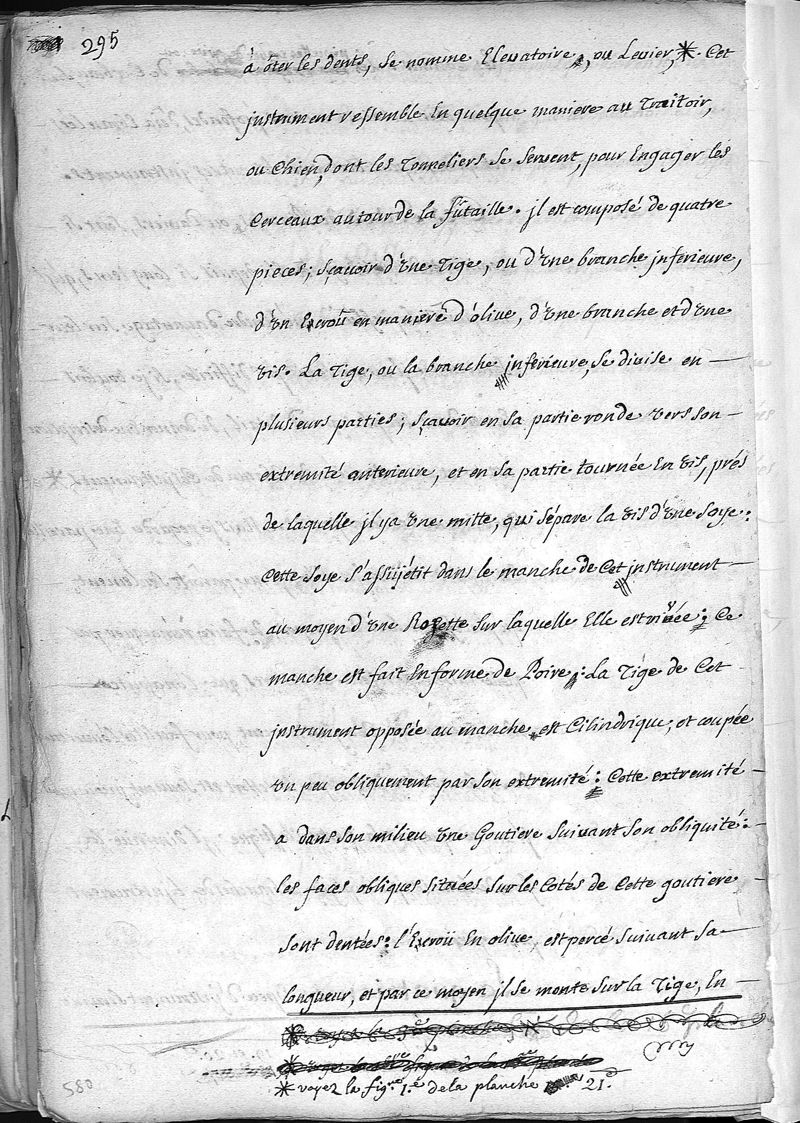 295
à ôter les dents, se nomme Elevatoire, ou Levier,* Cet
instrument ressemble En quelque maniere au Traitoir,
ou Chien, dont les Tonneliers se servent, pour Engager les
Cerceaux autour de la futaille. jl est composé de quatre
pieces; sçavoir d'vne Tige, ou d'vne branche jnferieure,
d'vn Ecroû en maniere d'olive, d'vne branche et d'vne
vis. La Tige, ou la branche jnferieure, se divise en —
plusieurs parties; sçavoir en sa partie ronde vers son —
extremité anterieure, et en sa partie tournée En vis, prés
de laquelle jl y a vne mitte, qui sépare la vis d'vne soye:
Cette soye s'assujétit dans le manche de Cet jnstrument —
au moyen d'vne Rozette sur laquelle Elle est rivée; Ce
manche est fait En forme de Poire: La Tige de Cet
jnstrument opposée au manche, est Cilindrique, et coupée
vn peu obliquement par son extremité: Cette extremité —
a dans son milieu vne Goutiere suivant son obliquité: —
les faces obliques situées sur les cotés de Cette goutiere —
sont dentées: l'Ecroü En olive, est percé suivant sa —
longueur, et par ce moyen jl se monte sur la Tige, En —
* voyez la fig.re 1.e de la planche 21.e
580